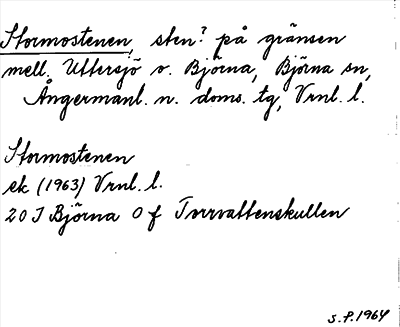 Stormostenen, sten? på gränsen
mell. Uttersjö o. Björna, Björna sn,
Ångermanl. n. doms. tg, Vrnl. l.
Stormostenen
ek (1963) Vrnl. l.
20 J Björna 0 f Torrvattenskullen
S.P. 1964